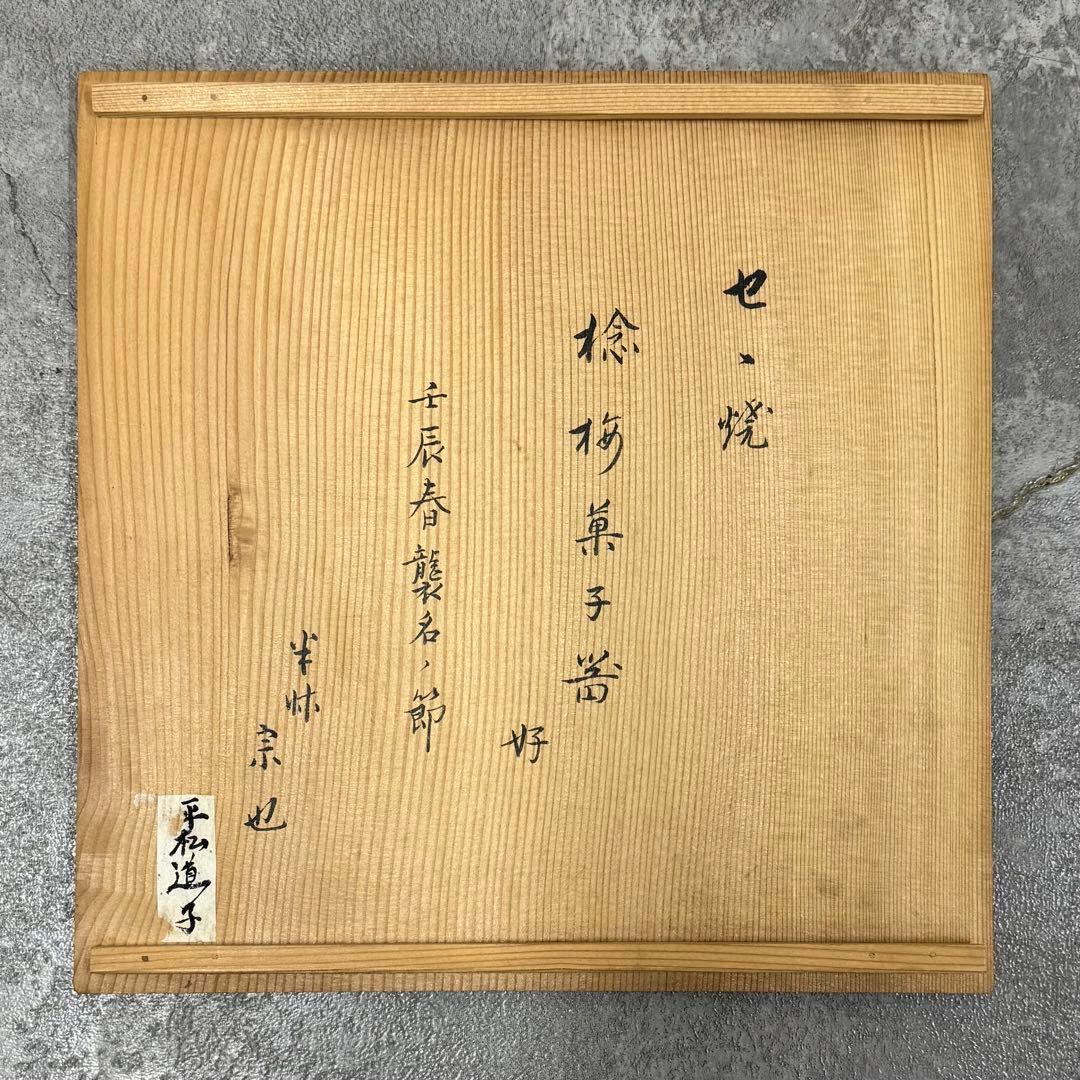 セヽ焼
捻梅菓子器
好
壬辰春襲名ノ節
半床
宗也
平松道子